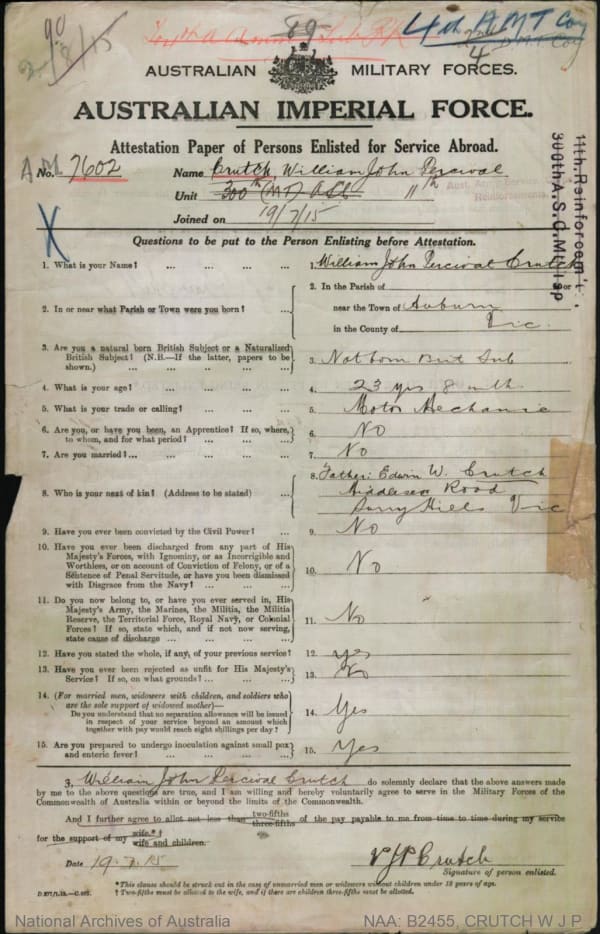 90
/8/15
89
4th A.M.T Coy
4
AUSTRALIAN MILITARY FORCES.
AUSTRALIAN IMPERIAL FORCE.
Attestation Paper of Persons Enlisted for Service Abroad.
No. 7602 Name Crutch, William John Percival
Unit 300th (MT) ASC 11th
Aust. Army Service
Reinforcements
Joined on 19/7/15
11th. Reinforcem't.
300th A.S.C. M.T.
Questions to be put to the Person Enlisting before Attestation.
1. What is your Name? ... ... ... ... 1. William John Percival Crutch
2. In or near what Parish or Town were you born? ... 2. In the Parish of or
near the Town of Auburn
in the County of Vic.
3. Are you a natural born British Subject or a Naturalized
British Subject? (N.B.—If the latter, papers to be
shown.) ... ... ... ... 3. Nat born Brit Sub
4. What is your age? ... ... ... ... 4. 23 yrs 8 mths
5. What is your trade or calling? ... ... ... 5. Motor Mechanic
6. Are you, or have you been, an Apprentice? If so, where,
to whom, and for what period? ... ... ... 6. No
7. Are you married? ... ... ... ... 7. No
8. Who is your next of kin? (Address to be stated) ... 8. Father: Edwin W. Crutch
Middlesex Road
Surry Hills Vic
9. Have you ever been convicted by the Civil Power? ... 9. No
10. Have you ever been discharged from any part of His
Majesty's Forces, with Ignominy, or as Incorrigible and
Worthless, or on account of Conviction of Felony, or of a
Sentence of Penal Servitude, or have you been dismissed
with Disgrace from the Navy? ... ... ... 10. No
11. Do you now belong to, or have you ever served in, His
Majesty's Army, the Marines, the Militia, the Militia
Reserve, the Territorial Force, Royal Navy, or Colonial
Forces? If so, state which, and if not now serving,
state cause of discharge ... ... ... 11. No
12. Have you stated the whole, if any, of your previous service? 12. Yes
13. Have you ever been rejected as unfit for His Majesty's
Service? If so, on what grounds? ... ... ... 13. No
14. (For married men, widowers with children, and soldiers who
are the sole support of widowed mother)—
Do you understand that no separation allowance will be issued
in respect of your service beyond an amount which
together with pay would reach eight shillings per day? ... 14. Yes
15. Are you prepared to undergo inoculation against small pox
and enteric fever? ... ... ... ... 15. Yes
I, William John Percival Crutch do solemnly declare that the above answers made
by me to the above questions are true, and I am willing and hereby voluntarily agree to serve in the Military Forces of the
Commonwealth of Australia within or beyond the limits of the Commonwealth.
And I further agree to allot not less than two-fifths three-fifths of the pay payable to me from time to time during my service
for the support of my wife.*† wife and children.
Date 19.7.15 WJP Crutch
Signature of person enlisted.
* This clause should be struck out in the case of unmarried men or widowers without children under 18 years of age.
† Two-fifths must be allotted to the wife, and if there are children three-fifths must be allotted.
National Archives of Australia NAA: B2455, CRUTCH W J P